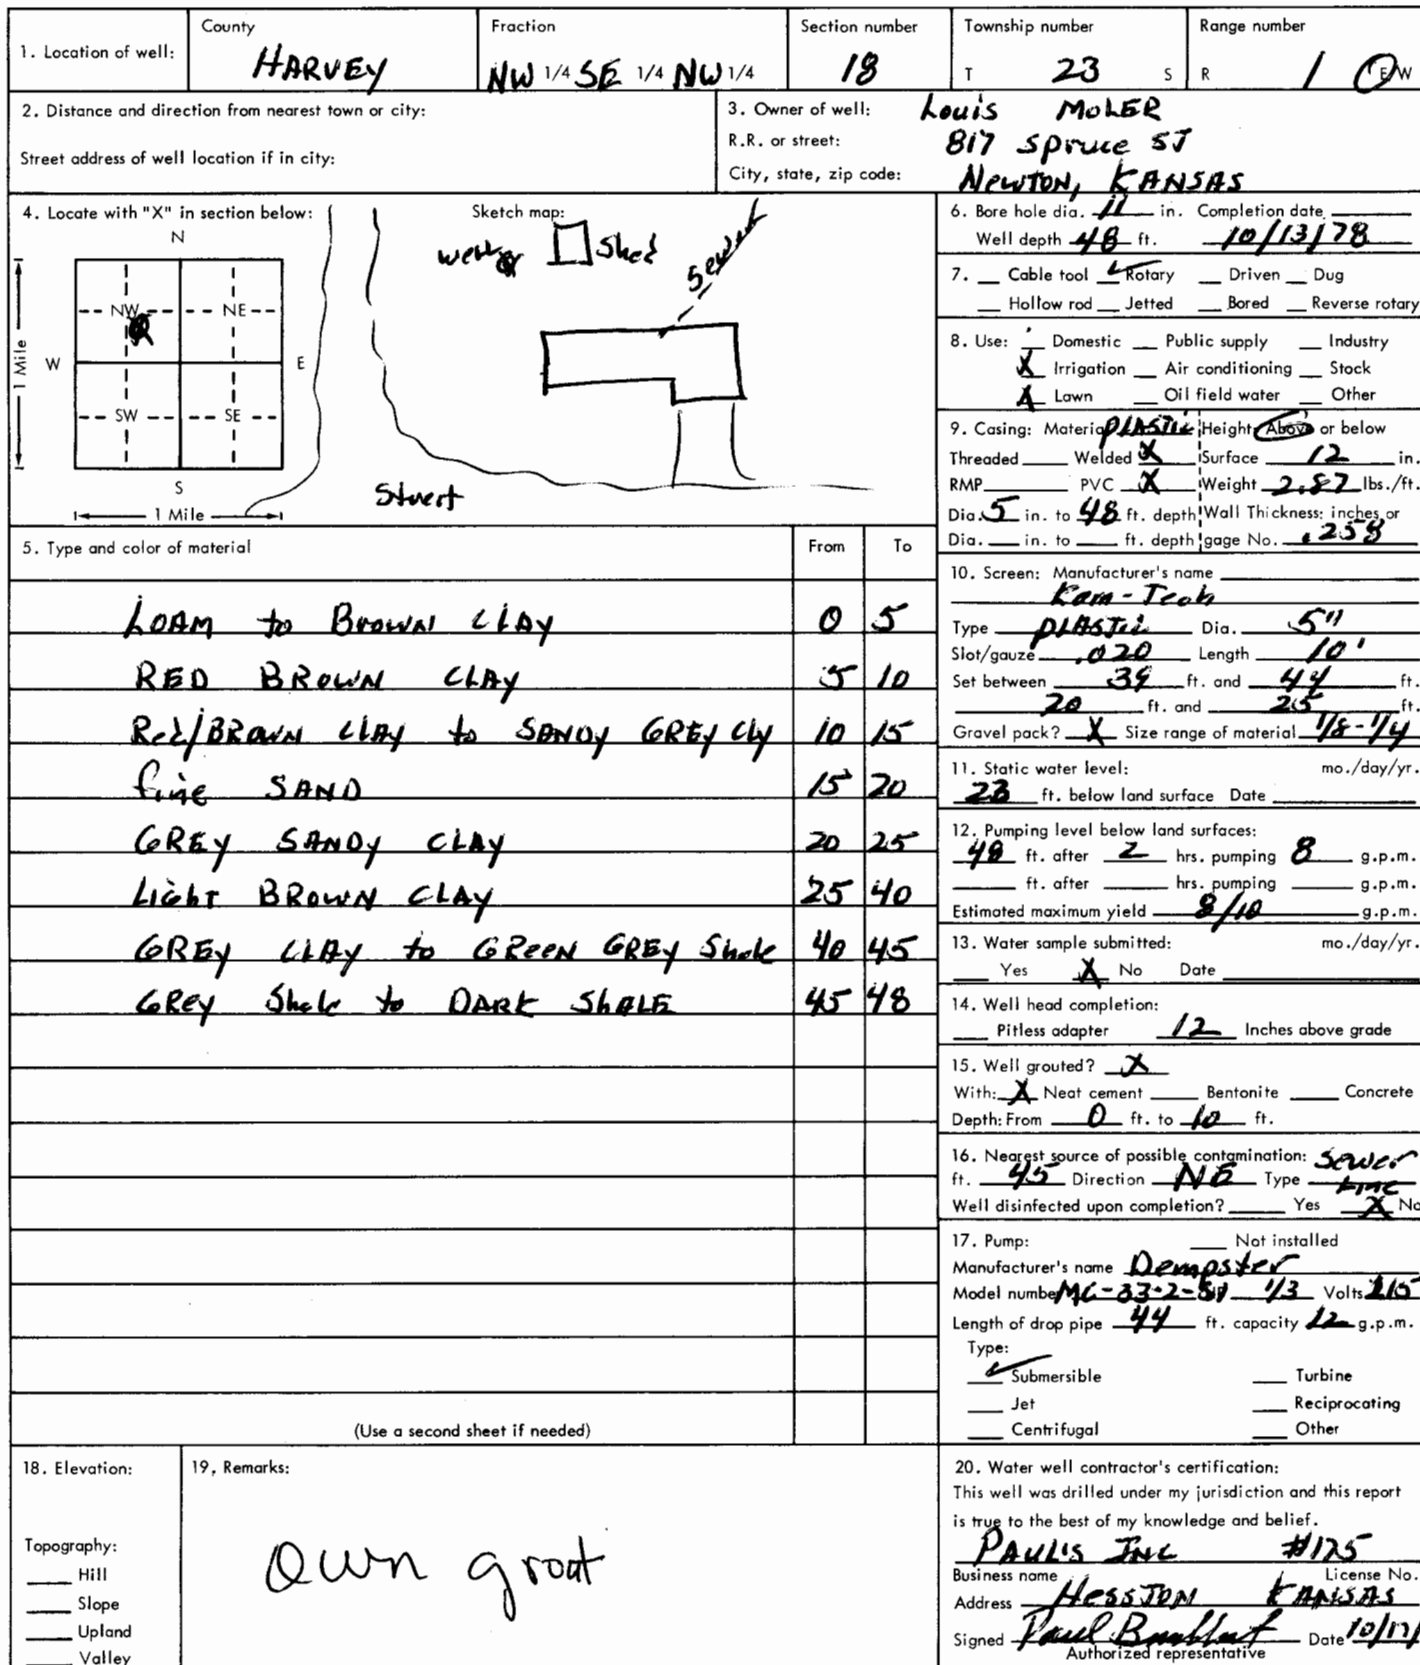 1. Location of well:
County
HARVEY
Fraction
NW 1/4 SE 1/4 NW 1/4
Section number
18
Township number
T 23 S
Range number
R 1 E/W
2. Distance and direction from nearest town or city:
Street address of well location if in city:
3. Owner of well: Louis MOLER
R.R. or street: 817 Spruce ST
City, state, zip code: NEWTON, KANSAS
4. Locate with "X" in section below:
N
NW NE
W E
SW SE
S
1 Mile
1 Mile
Sketch map:
well Shed
Sewer
Street
5. Type and color of material From To
LOAM to BROWN CLAY 0 5
RED BROWN CLAY 5 10
Red/BROWN CLAY to SANDY GREY Cly 10 15
fine SAND 15 20
GREY SANDY CLAY 20 25
Light BROWN CLAY 25 40
GREY CLAY to GREEN GREY Shale 40 45
GREY Shale to DARK SHALE 45 48
(Use a second sheet if needed)
6. Bore hole dia. 11 in. Completion date
Well depth 48 ft. 10/13/78
7. Cable tool Rotary Driven Dug
Hollow rod Jetted Bored Reverse rotary
8. Use: Domestic Public supply Industry
X Irrigation Air conditioning Stock
X Lawn Oil field water Other
9. Casing: Material PLASTIC Height: Above or below
Threaded Welded X Surface 12 in.
RMP PVC X Weight 2.87 lbs./ft.
Dia. 5 in. to 48 ft. depth Wall Thickness: inches or
Dia. in. to ft. depth gage No. .258
10. Screen: Manufacturer's name
Kam-Tech
Type PLASTIC Dia. 5"
Slot/gauze .020 Length 10'
Set between 39 ft. and 44 ft.
20 ft. and 25 ft.
Gravel pack? X Size range of material 1/8-1/4
11. Static water level: mo./day/yr.
23 ft. below land surface Date
12. Pumping level below land surfaces:
48 ft. after 2 hrs. pumping 8 g.p.m.
ft. after hrs. pumping g.p.m.
Estimated maximum yield 8/10 g.p.m.
13. Water sample submitted: mo./day/yr.
Yes X No Date
14. Well head completion:
Pitless adapter 12 Inches above grade
15. Well grouted? X
With: X Neat cement Bentonite Concrete
Depth: From 0 ft. to 10 ft.
16. Nearest source of possible contamination: Sewer
ft. 45 Direction NE Type Line
Well disinfected upon completion? Yes X No
17. Pump: Not installed
Manufacturer's name Dempster
Model number 1/3 Volts 115
Length of drop pipe 44 ft. capacity 12 g.p.m.
Type:
Submersible Turbine
Jet Reciprocating
Centrifugal Other
18. Elevation:
Topography:
Hill
Slope
Upland
Valley
19. Remarks:
Own grout
20. Water well contractor's certification:
This well was drilled under my jurisdiction and this report
is true to the best of my knowledge and belief.
PAUL'S INC #125
Business name License No.
Address HESSTON KANSAS
Signed Paul Date 10/17/
Authorized representative